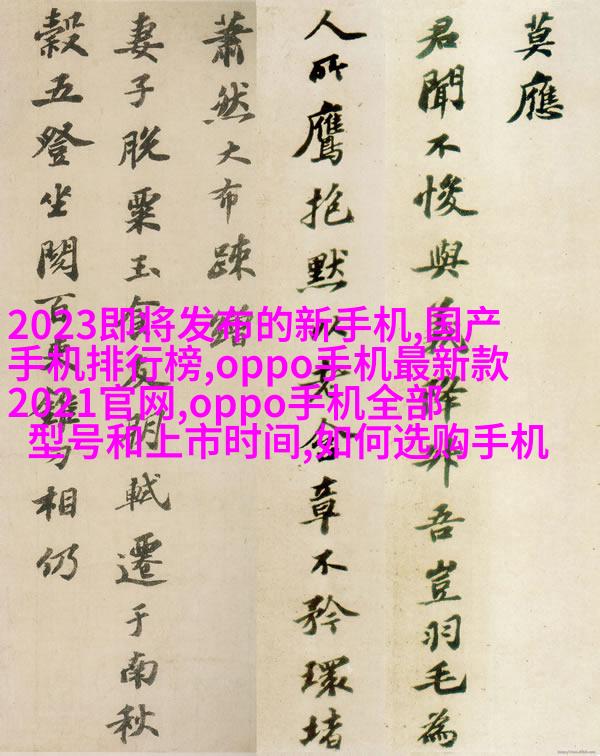 2023即将发布的新手机,国产
手机排行榜,oppo手机最新款
2021官网,oppo手机全部
型号和上市时间,如何选购手机
莫應
君聞不悛與義降升吾豈羽毛為
人所鷹抱默以老含章不矜環堵
蕭然大布疎繒
妻子脫粟玉食友朋軾遷于南秋
穀五登坐閱百吏錐刀相仍